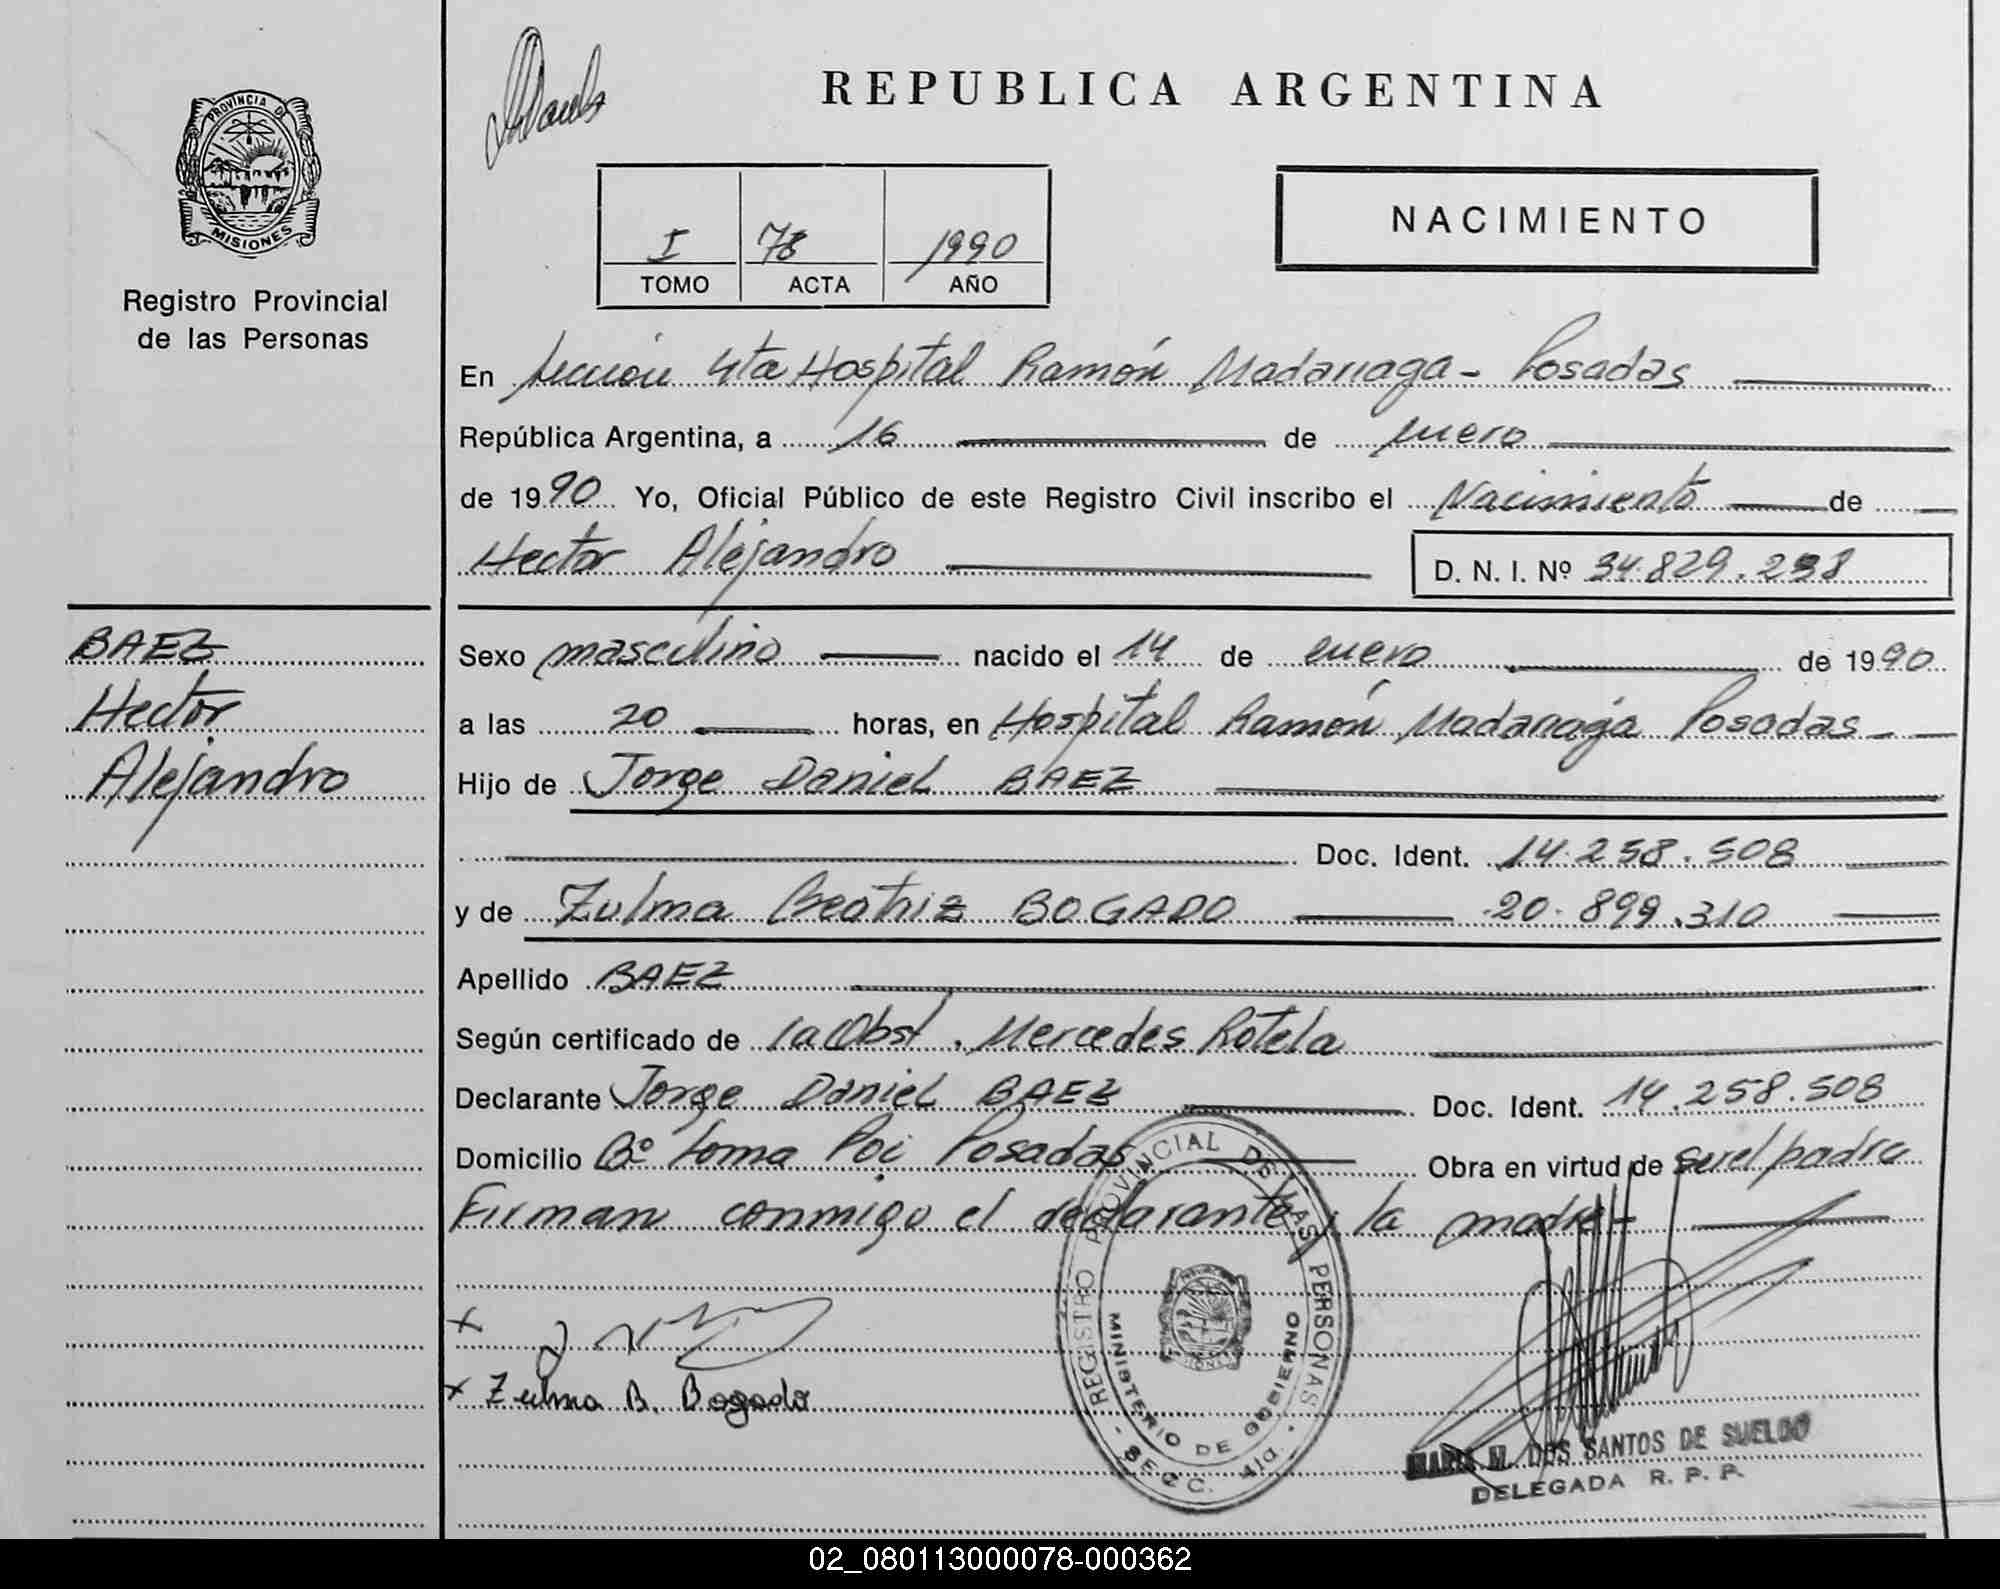 REPUBLICA ARGENTINA
PROVINCIA DE
MISIONES
Registro Provincial
de las Personas
I 78 1990
TOMO ACTA AÑO
NACIMIENTO
En Sección 4ta Hospital Ramón Madariaga - Posadas
República Argentina, a 16 de enero
de 1990 Yo, Oficial Público de este Registro Civil inscribo el Nacimiento de
Hector Alejandro D. N. I. Nº 34.829.238
BAEZ
Hector
Alejandro
Sexo masculino nacido el 14 de enero de 1990
a las 20 horas, en Hospital Ramón Madariaga Posadas
Hijo de Jorge Daniel BAEZ
Doc. Ident. 14.258.508
y de Zulma Beatriz BOGADO 20.899.310
Apellido BAEZ
Según certificado de la Obst. Mercedes Rotela
Declarante Jorge Daniel BAEZ Doc. Ident. 14.258.508
Domicilio Bº Loma Poi Posadas Obra en virtud de ser el padre
Firman conmigo el declarante y la madre
Zulma B. Bogado
REGISTRO PROVINCIAL DE LAS PERSONAS
MINISTERIO DE GOBIERNO
SECC. 4ta.
MARIA M. DOS SANTOS DE SUELDO
DELEGADA R. P. P.
02_080113000078-000362